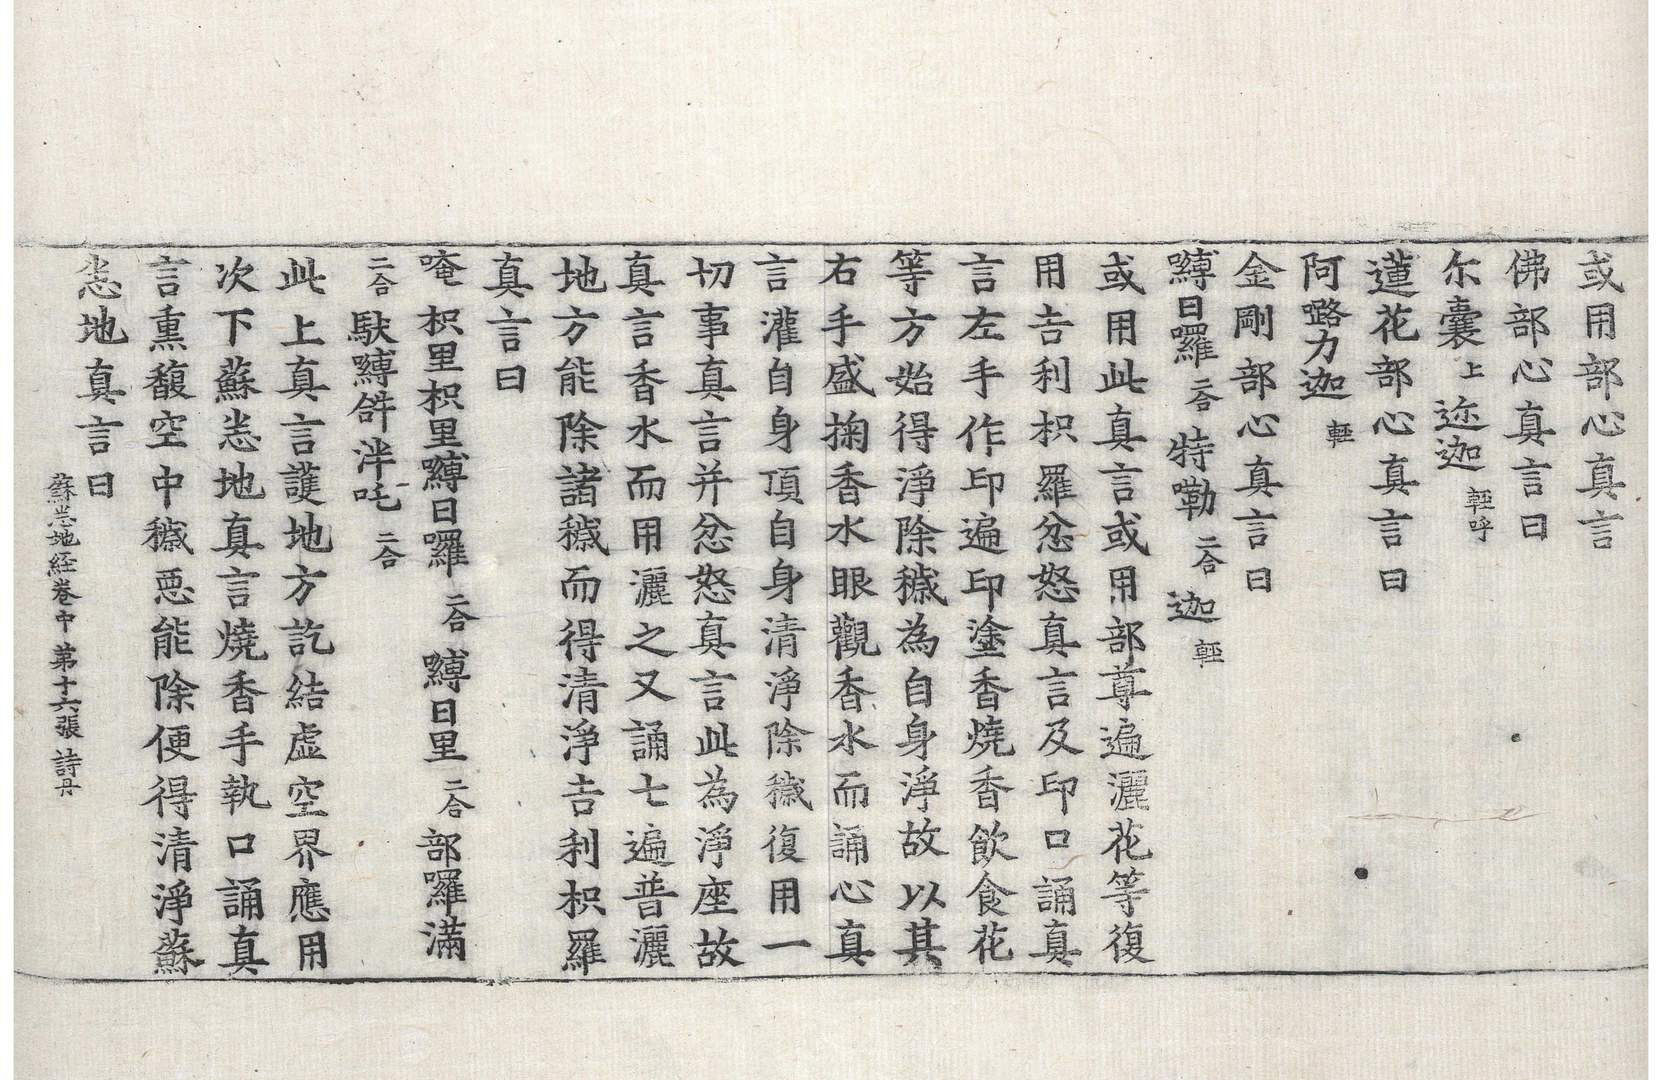 或用部心真言
佛部心真言曰
尓囊上迩迦輕呼
蓮花部心真言曰
阿嚕力迦輕
金剛部心真言曰
嚩日囉二合特嘞二合迦輕
或用此真言或用部尊遍灑花等復
用吉利枳羅忿怒真言及印口誦真
言左手作印遍印塗香燒香飲食花
等方始得淨除穢為自身淨故以其
右手盛掬香水眼觀香水而誦心真
言灌自身頂自身清淨除穢復用一
切事真言并忿怒真言此為淨座故
真言香水而用灑之又誦七遍普灑
地方能除諸穢而得清淨吉利枳羅
真言曰
唵枳里枳里嚩日囉二合嚩日里二合部囉滿
二合馱嚩𤙖泮吒二合
此上真言護地方訖結虛空界應用
次下蘇悉地真言燒香手執口誦真
言熏馥空中穢惡能除便得清淨蘇
悉地真言曰
蘇悉地経卷中第十六張詩丹